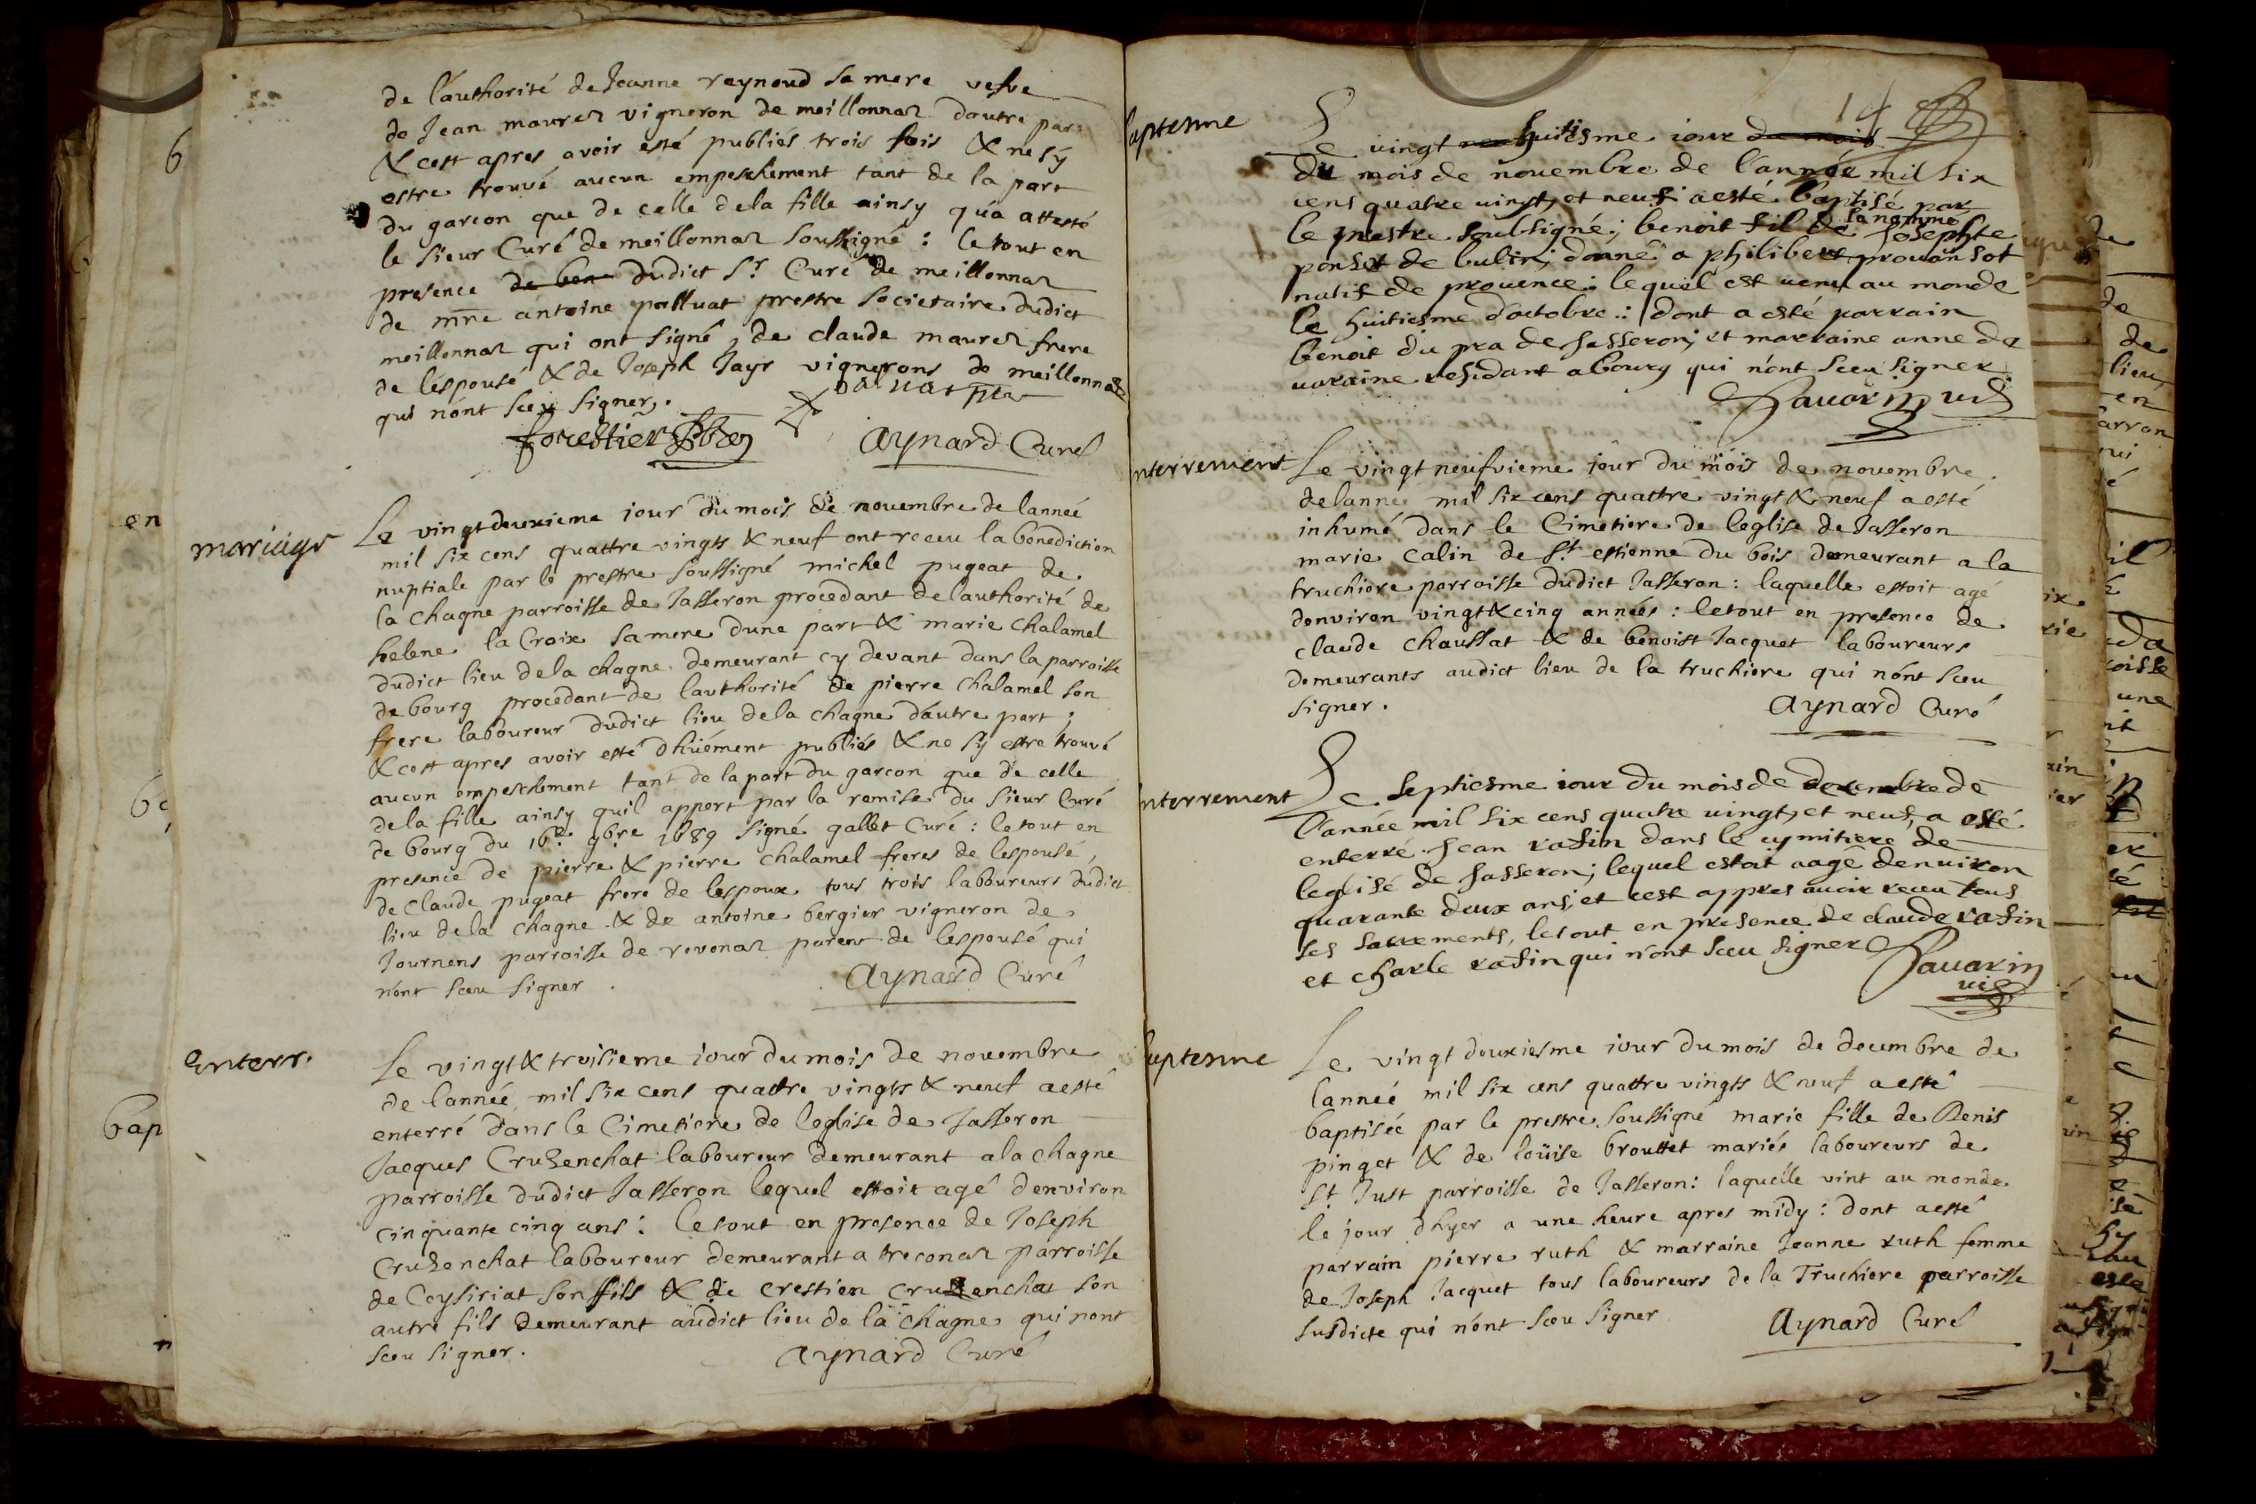 de lauthorité de Jeanne raynoud sa mere vefve
de Jean maurez vigneron de meillonnaz dautre part
& cest apres avoir esté publiés trois fois & ne sy
estre trouvé aucun empeschement tant de la part
du garcon que de celle dela fille ainsy qu'a attesté
le sieur Curé de meillonnaz soussigné : le tout en
presence de ben dudict Sr Curé de meillonnaz
de mre antoine palluat prestre societaire dudict
meillonnaz qui ont signé, de claude maurez frere
de lespousé & de Joseph Jayr vignerons de meillonnaz
qui n'ont sceu signer.
palluat ptre
forestier
Aynard Curé
mariage
Le vingtdeuxieme iour du mois de novembre de lanneé
mil six cens quattre vingts & neuf ont receu la benediction
nuptiale par le prestre soussigné michel pugeat de
la chagne parroisse de Jasseron procedant de lauthorité de
helene la Croix sa mere dune part & marie chalamel
dudict lieu de la chagne demeurant cy devant dans la parroisse
de bourg procedant de lauthorité de pierre chalamel son
frere laboureur dudict lieu de la chagne d'autre part ;
& cest apres avoir esté dhüément publiés & ne sy estre trouvé
aucun empeschement tant de la part du garcon que de celle
de la fille ainsy quil appert par la remise du sieur Curé
de bourg du 16e 9bre 1689 signé gallet Curé : le tout en
presence de pierre & pierre chalamel freres de lespousé,
de claude pugeat frere de lespoux tous trois laboureurs dudict
lieu de la chagne & de antoine bergier vigneron de
Journens parroisse de revonaz parent de lespousé qui
n'ont sceu signer.
Aynard Curé
Enterr.
Le vingt & troisieme iour du mois de novembre
de lannée mil six cens quattre vingts & neuf a esté
enterré dans le Cimetiere de leglise de Jasseron
Jacques Cruzenchat laboureur demeurant a la chagne
parroisse dudict Jasseron lequel estoit agé d'environ
cinquante cinq ans : le tout en presence de Joseph
Cruzenchat laboureur demeurant a treconaz parroisse
de Ceysiriat son fils & de crestien cruzenchat son
autre fils demeurant audict lieu de la chagne qui nont
sceu signer.
Aynard Curé
14
baptesme
Le vingt huitiesme iour de mois
du mois de novembre de l'année mil six
cens quatre vingt, et neuf a esté baptisé par
le prestre soubsigné ; benoit fil de Josephte
la nommé
ponset de bulin, donné a philibert prouansot
natif de prouence : lequel est uenu au monde
le huitiesme d'octobre : dont a esté parrain
benoit du pra de Jasseron ; et marraine anne de
uaraine residant a bourg qui n'ont sceu signer
Sauarin uic
Enterrement
Le vingt neufvieme jour du mois de novembre
de lanneé mil six cens quattre vingt & neuf a esté
inhumé dans le Cimetiere de leglise de Jasseron
marie Calin de St estienne du bois demeurant a la
truchiere parroisse dudict Jasseron : laquelle estoit agé
denviron vingt & cinq années : le tout en presence de
claude chaussat & de benoist Jacquet laboureurs
demeurants audict lieu de la truchiere qui n'ont sceu
signer.
Aynard Curé
Enterrement
Le septiesme iour du mois de decembre de
l'année mil six cens quatre uingt, et neuf, a esté
enterré Jean rafin dans le cymitiere de
leglise de Jasseron ; lequel estoit aagé denuiron
quarante deux ans, et cest appres auoir receu tous
ses sacrements, le tout en presence de claude rafin
et charle rafin qui n'ont sceu signer
Sauarin
uic
baptesme
Le vingt deuxiesme iour du mois de decembre de
lanneé mil six cens quattre vingts & neuf a esté
baptiséé par le prestre soussigné marie fille de Denis
pinget & de loüise brouttet mariés laboureurs de
St Just parroisse de Jasseron : laquelle vint au monde
le jour dhyer a une heure apres midy : dont a esté
parrain pierre ruth & marraine Jeanne ruth femme
de Joseph Jacquet tous laboureurs de la Truchiere parroisse
susdicte qui n'ont sceu signer
Aynard Curé